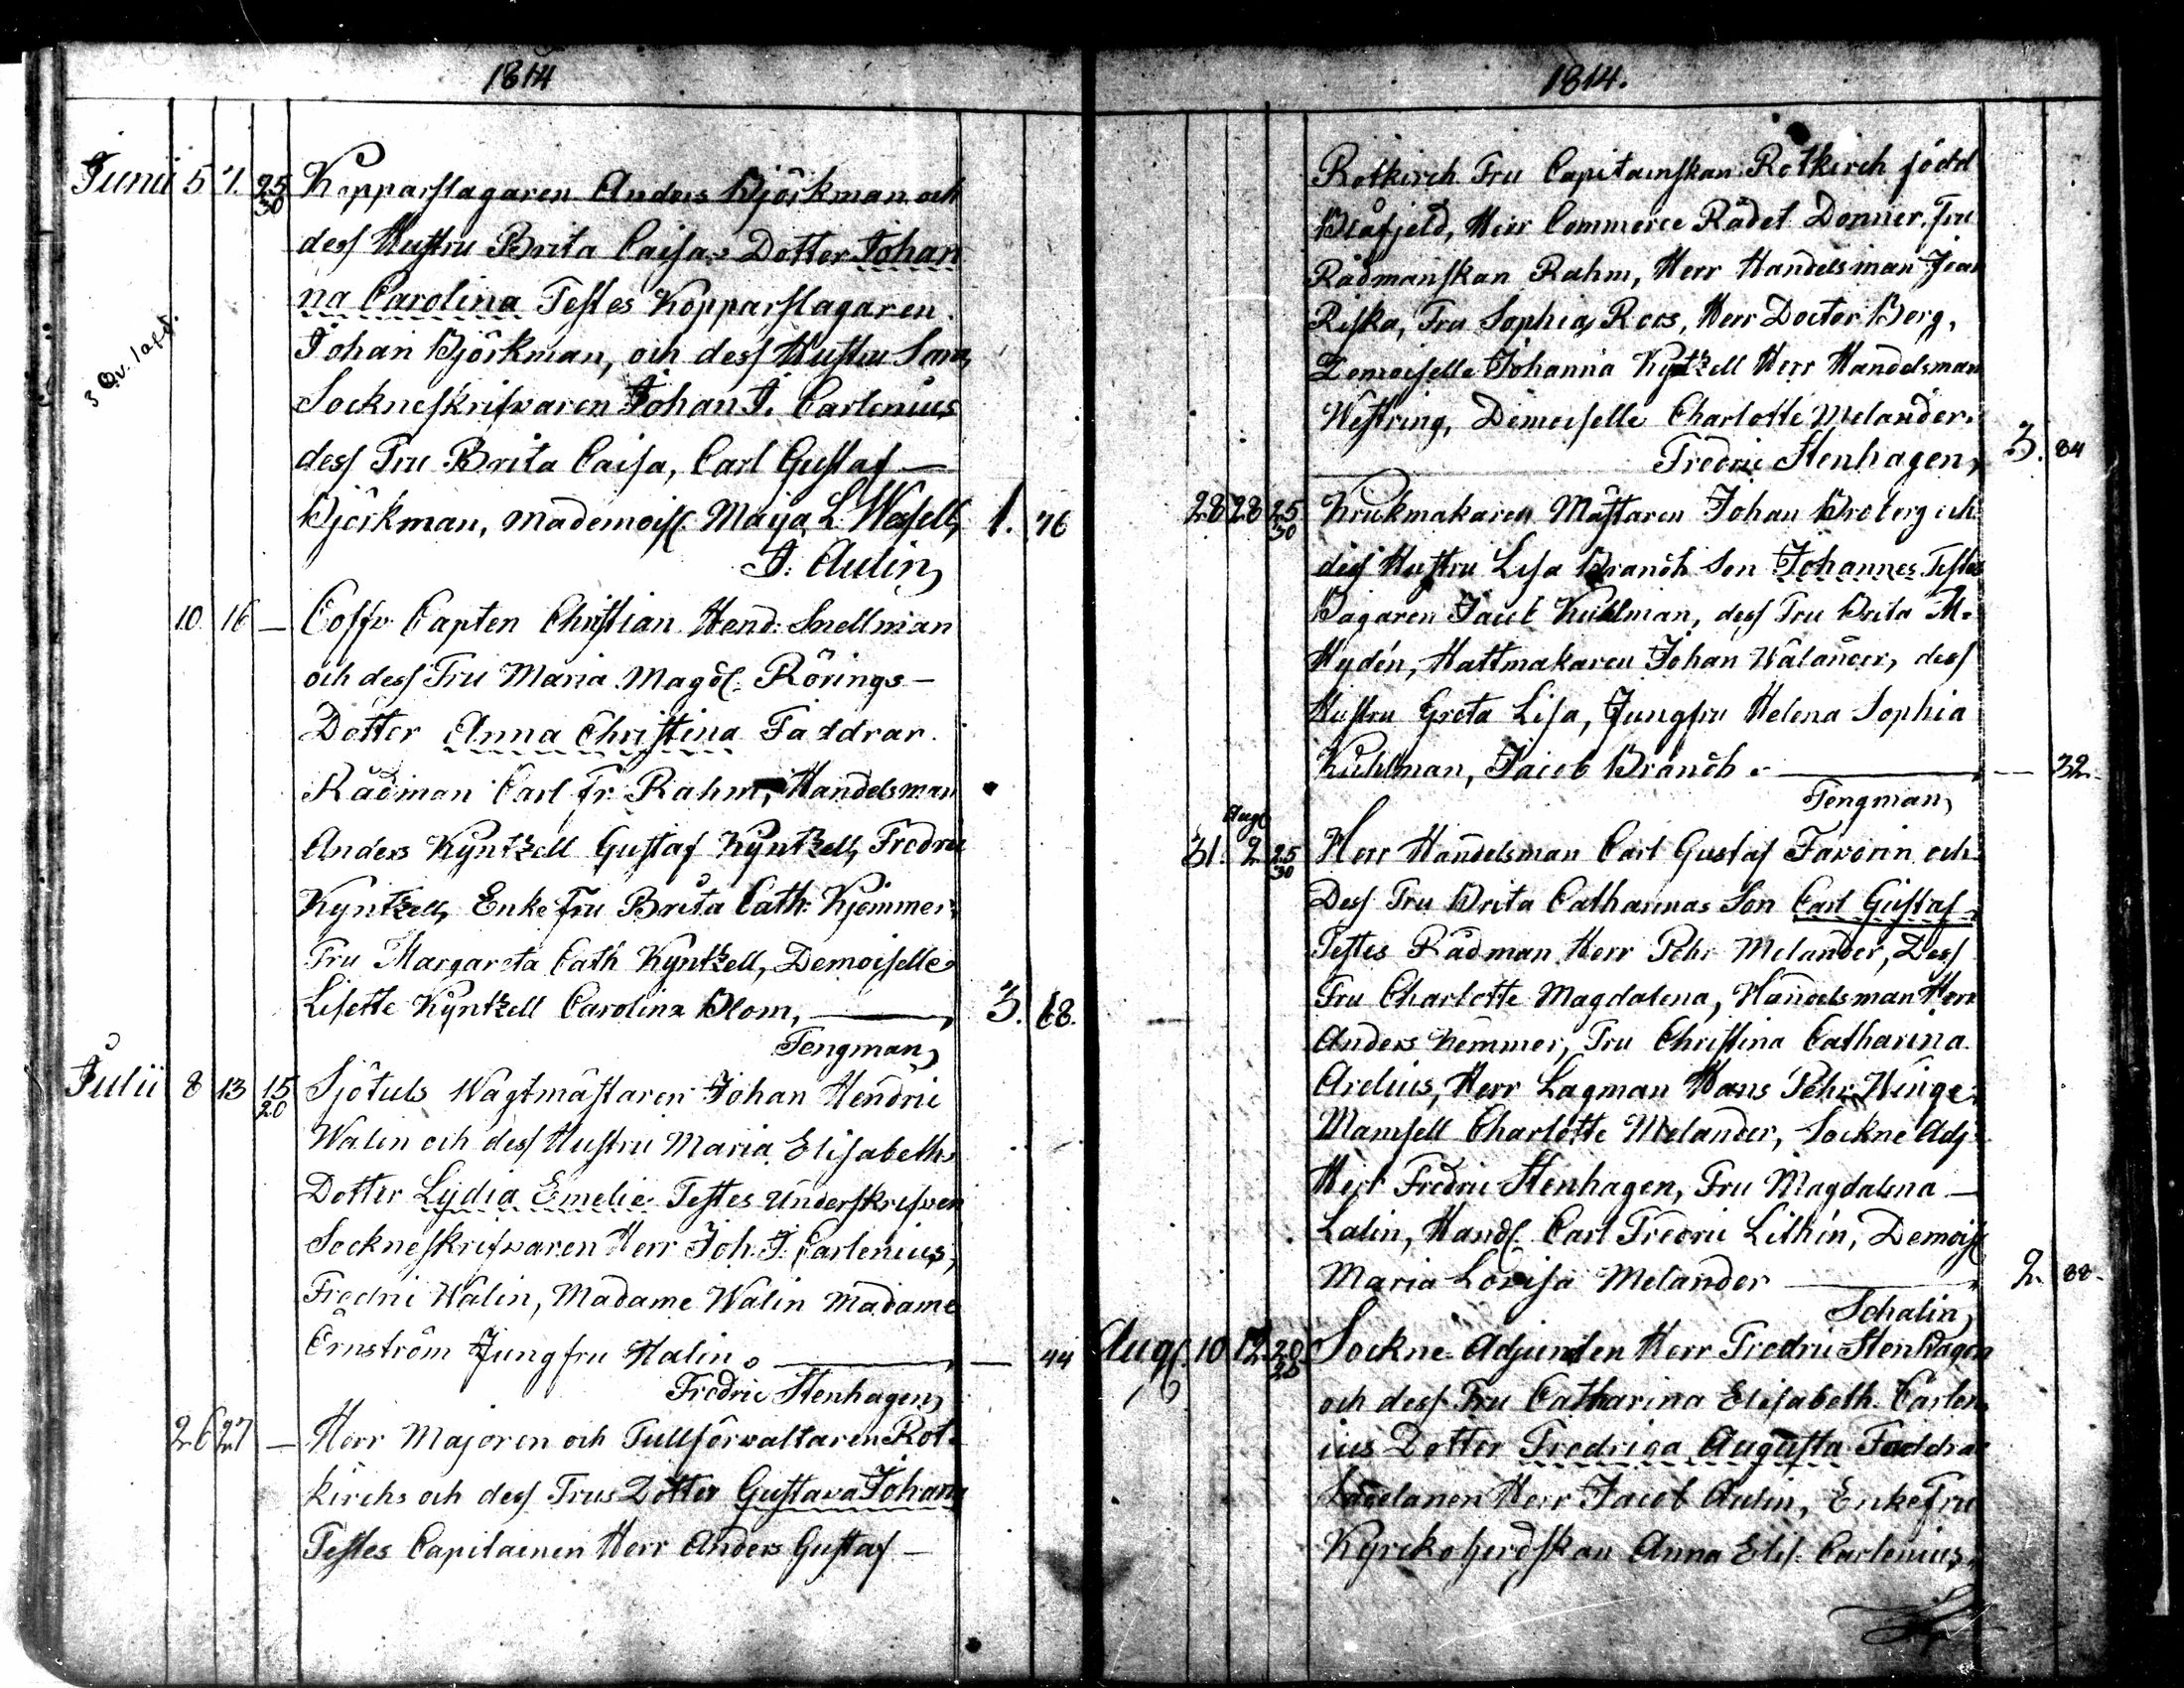 1814
Junii 5 7. 25/30 Kopparslagaren Anders Björkman och
dess Hustru Brita Caisas Dotter Johan
na Carolina Testes Kopparslagaren
Johan Björkman, och dess Hustru Sara,
Sockneskrifvaren Johan J. Carlenius
dess Fru Brita Caisa, Carl Gustaf —
Björkman, Mademoisl Maja L. Wassell, 1. 76
J. Aulin,
3 Qv. läst.
10. 16 — Coffv Capten Christian Hend: Snellman
och dess Fru Maria Magdl: Rörings —
Dotter Anna Christina Faddrar.
Rådman Carl Fr. Rahm, Handelsman
Anders Kyntzell Gustaf Kyntzell, Fredric
Kyntzell, Enke Fru Brita Cath: Kjemmer,
Fru Margareta Cath Kyntzell, Demoiselle
Lisette Kyntzell Carolina Blom, — 3. 68.
Tengman,
Julii 8 13 15/20 Sjötuls Wagtmästaren Johan Hendric
Walin och dess Hustru Maria Elisabeths
Dotter Lydia Emelie Testes Underskrifven
Sockneskrifvaren Herr Joh. J. Carlenius,
Fredric Walin, Madame Walin Madame
Örnström Jungfru Halin. — — 44
Fredric Stenhagen,
26 27 — Herr Majoren och Tullförvaltaren Rot-
kirchs och dess Frus Dotter Gustava Johana
Testes Capitainen Herr Anders Gustaf —
1814.
Rotkirch Fru Capitainskan Rotkirch född
Blåfjeld, Herr Commerce Rådet Donner, Fru
Rådmanskan Rahm, Herr Handelsman Jean
Riska, Fru Sophia Roos, Herr Doctor Berg,
Demoiselle Johanna Kyntzell Herr Handelsman
Westring, Demoiselle Charlotte Melander.
Fredric Stenhagen, 3. 84
28 28 25/30 Krukmakaren Mästaren Johan Broberg och
dess Hustru Lisa Brandh Son Johannes Testes
Bagaren Jacob Kuhlman, dess Fru Brita M.
Hydén, Hattmakaren Johan Wålander, dess
Hustru Greta Lisa, Jungfru Helena Sophia
Kuhlman, Jacob Brandh. — — 32.
Tengman,
Augl
31. 2 25/30 Herr Handelsman Carl Gustaf Favorin och
Dess Fru Brita Catharinas Son Carl Gustaf
Testes Rådman Herr Pehr Melander, Dess
Fru Charlotte Magdalena, Handelsman Herr
Anders Kemmer, Fru Christina Catharina
Arelius, Herr Lagman Hans Pehr Winge
Mamsell Charlotte Melander, Sockne Adj:
Herr Fredric Stenhagen, Fru Magdalena —
Lalin, Handl. Carl Fredric Lithén, Demoisl
Maria Lovisa Melander — 2. 88.
Schalin,
Augl. 10 12 20/25 Sockne Adjuncten Herr Fredric Stenhagen
och dess Fru Catharina Elisabeth Carlen
ius Dotter Fredrica Augusta Faddrar
Herr Jacob Aulin, Enkefru
Kyrkoherdskan Anna Elis: Carlenius,